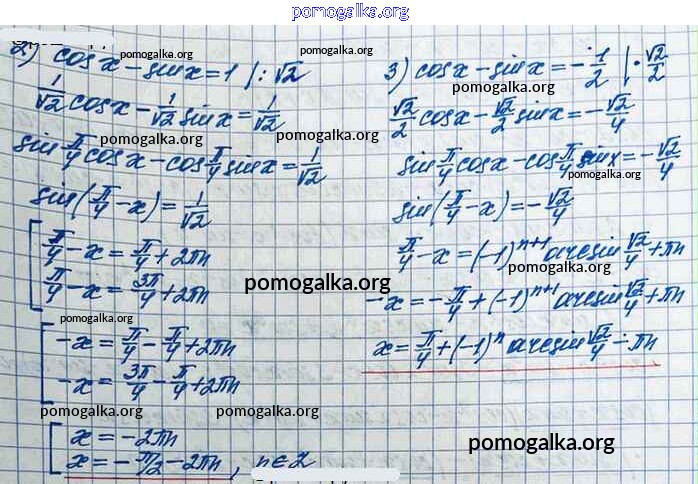 pomogalka.org
2) cos x - sin x = 1 |: √2
pomogalka.org
1/√2 cos x - 1/√2 sin x = 1/√2
pomogalka.org
sin π/4 cos x - cos π/4 sin x = 1/√2
sin(π/4 - x) = 1/√2
pomogalka.org
[ π/4 - x = π/4 + 2πn
π/4 - x = 3π/4 + 2πn
pomogalka.org
pomogalka.org
[ -x = π/4 - π/4 + 2πn
-x = 3π/4 - π/4 + 2πn
pomogalka.org
pomogalka.org
[ x = -2πn
x = -π/2 - 2πn, n ∈ Z
pomogalka.org
3) cos x - sin x = -1/2 | · √2/2
pomogalka.org
√2/2 cos x - √2/2 sin x = -√2/4
pomogalka.org
sin π/4 cos x - cos π/4 sin x = -√2/4
pomogalka.org
sin(π/4 - x) = -√2/4
π/4 - x = (-1)^{n+1} arcsin √2/4 + πn
pomogalka.org
-x = -π/4 + (-1)^{n+1} arcsin √2/4 + πn
pomogalka.org
x = π/4 + (-1)^n arcsin √2/4 - πn
pomogalka.org